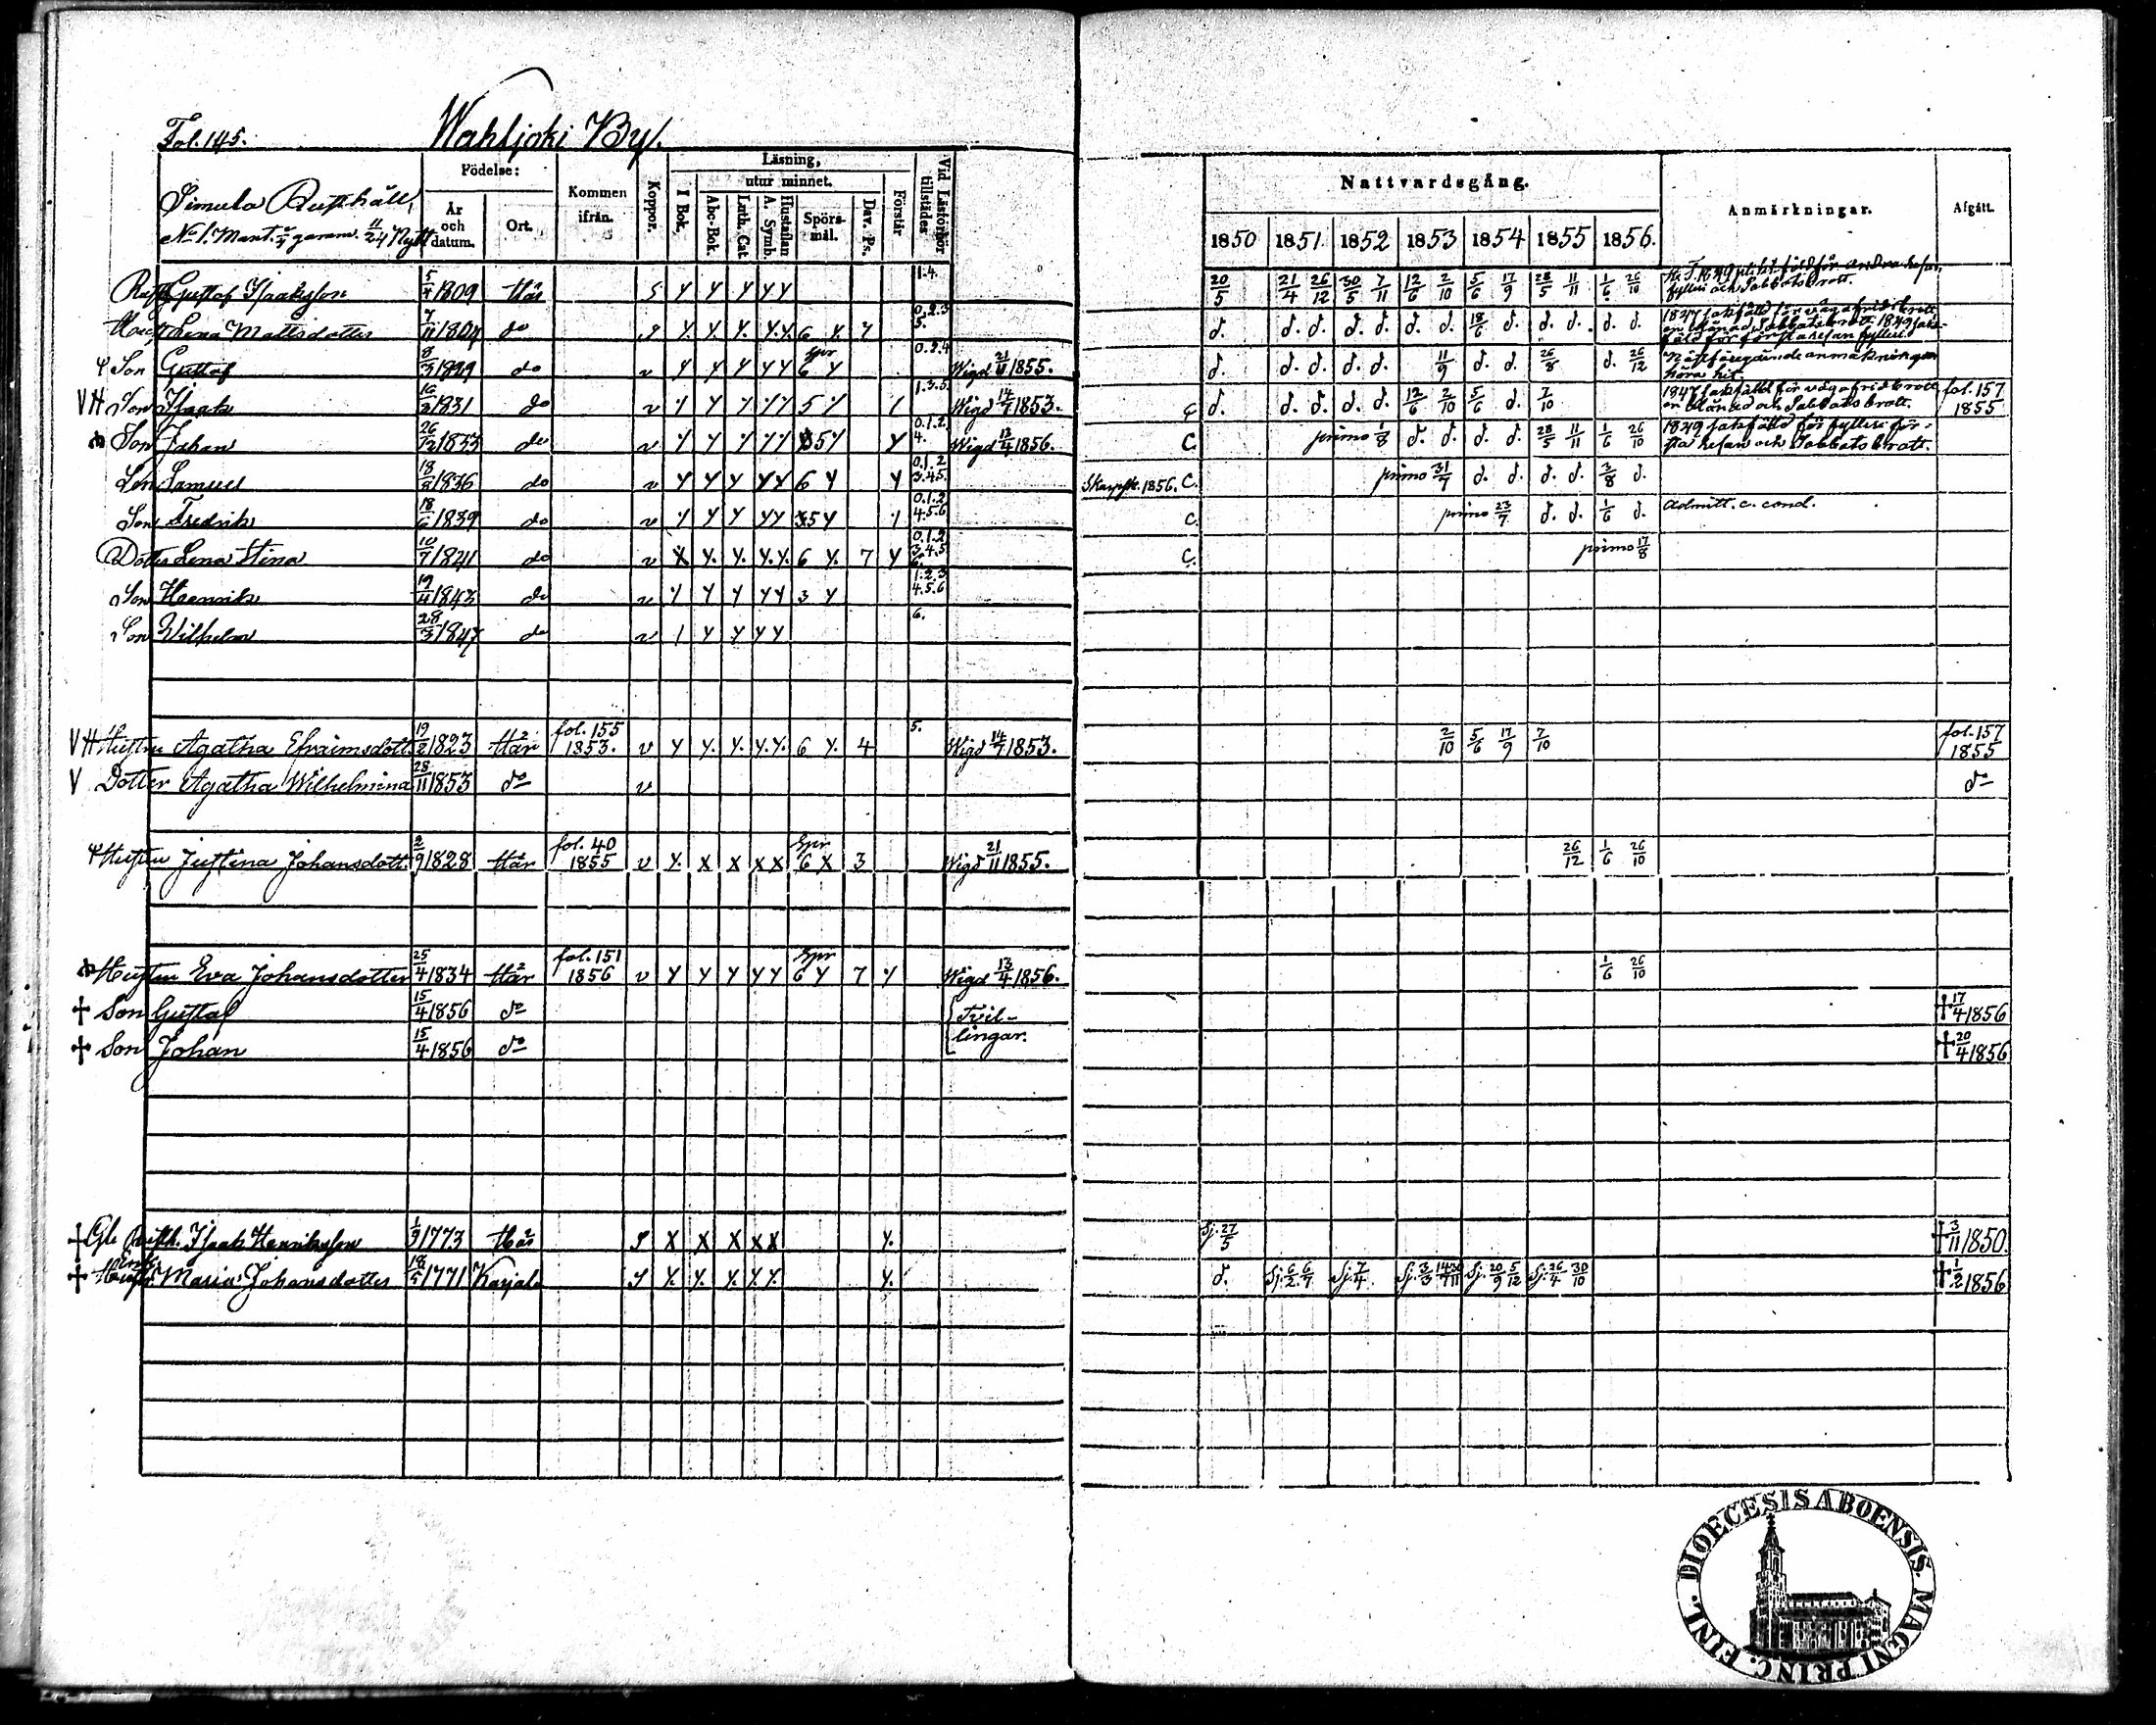 Fol. 145. Wahljoki By.
Simula Rusthåll,
No 1. Mant. gamm. 11/24 Nytt
Födelse:
År och datum.
Ort.
Kommen ifrån.
Koppor.
Läsning,
I Bok.
utur minnet.
Abc-Bok.
Luth. Cat
A. Symb.
Hustaflan
Spörsmål.
Dav. Ps.
Förstår
Vid Läsförhör tillstädes
Nattvardsgång.
1850 1851 1852 1853 1854 1855 1856.
Anmärkningar.
Afgått.
Rusth. Gustaf Isaaksson 5/4 1809 Här S Y Y Y Y Y 1.4. 20/5 21/4 26/12 30/5 7/11 12/6 2/10 5/6 17/9 28/5 11/11 1/6 26/10 fylleri och Sabbatsbrott.
Hust. Lena Mattsdotter 7/11 1804 do S Y. Y. Y. Y. Y. 6 Y. 7 0.2.3 5. d. d. d. d. d. d. d. 18/6 d. d. d. d. d. 1847 sakfälld för vägafridsbrott en Månad, Sabbatsbrott. 1849 sakfäld för första resan fylleri.
Son Gustaf 8/3 1829 do v Y Y Y Y Y Spr 6 Y 0.2.4 Wigd 21/11 1855. d. d. d. d. d. 11/9 d. d. 26/8 d. 26/12 Nästföregående anmäkningar höra hit.
VH Son Isaak 16/2 1831 do v 5 1.3.5. Wigd 14/7 1853. C d. d. d. d. d. 12/6 2/10 5/6 d. 7/10 1847 sakfälld för vägafridsbrott en Månad och Sabbatsbrott. fol. 157 1855
Son Johan 26/12 1833 do v 5 Y 0.1.2. 4. Wigd 13/4 1856. C. primo 1/8 d. d. d. d. 28/5 11/11 1/6 26/10 1849 sakfälld för fylleri första resan och Sabbatsbrott.
Son Samuel 18/3 1836 do v Y Y Y Y Y 6 Y Y 0.1.2 3.4.5. Skarpsk. 1856. C. primo 31/7 d. d. d. d. 3/8 d.
Son Fredrik 18/6 1839 do v Y Y Y Y 5 Y 0.1.2 4.5.6 C. primo 23/7 d. d. 1/6 d. Admitt. c. cond.
Dotter Lena Stina 10/7 1841 do v X Y. Y. Y. Y. 6 Y. 7 Y 0.1.2 3.4.5 6. C. primo 17/8
Son Henrik 19/11 1843 do v Y Y Y Y 3 Y 1.2.3 4.5.6
Son Wilhelm 28/3 1847 do v Y Y Y Y 6.
VH Hustru Agatha Efraimsdott. 19/2 1823 Här fol. 155 1853. v Y Y. Y. Y. Y. 6 Y. 4 5. Wigd 14/7 1853. 2/10 5/6 17/9 7/10 fol. 157 1855
V Dotter Agatha Wilhelmina 28/11 1853 do v do
Hustru Justina Johansdott. 2/9 1828 Här fol. 40 1855 v Y. X X X X Spr 6 X 3 Wigd 21/11 1855. 26/12 1/6 26/10
Hustru Eva Johansdotter 25/4 1834 Här fol. 151 1856 v Y Y Y Y Y Spr 6 Y 7 Y Wigd 13/4 1856. 1/6 26/10
† Son Gustaf 15/4 1856 do Tvil- † 17/4 1856
† Son Johan 15/4 1856 do lingar. † 20/4 1856
† Gle Rusth. Isaak Henriksson 1/3 1773 Här S X X X X X Y. Sj. 27/5 † 3/11 1850.
† Enk. Maria Johansdotter 1771 Karjala S Y. Y. Y. Y. Y. Y. d. Sj. 6/2 6/7 Sj. 7/4 Sj. 3/3 Sj. 20/9 5/12 Sj. 26/4 30/10 † 1/2 1856
DIOECESIS ABOENSIS. MAGNI PRINC. FINL.